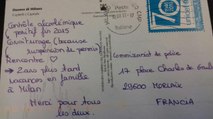 Duomo di Milano
Contrôle alcoolémique
positif fin 2015
Covoiturage (because
suspension du permis)
Rencontre ♡
➔ 2ans plus tard
vacances en famille
à Milan
Merci pour tous
les deux.
Commissariat de police
17 place Charles de Gaulle
29600 MORLAIX
FRANCIA
70